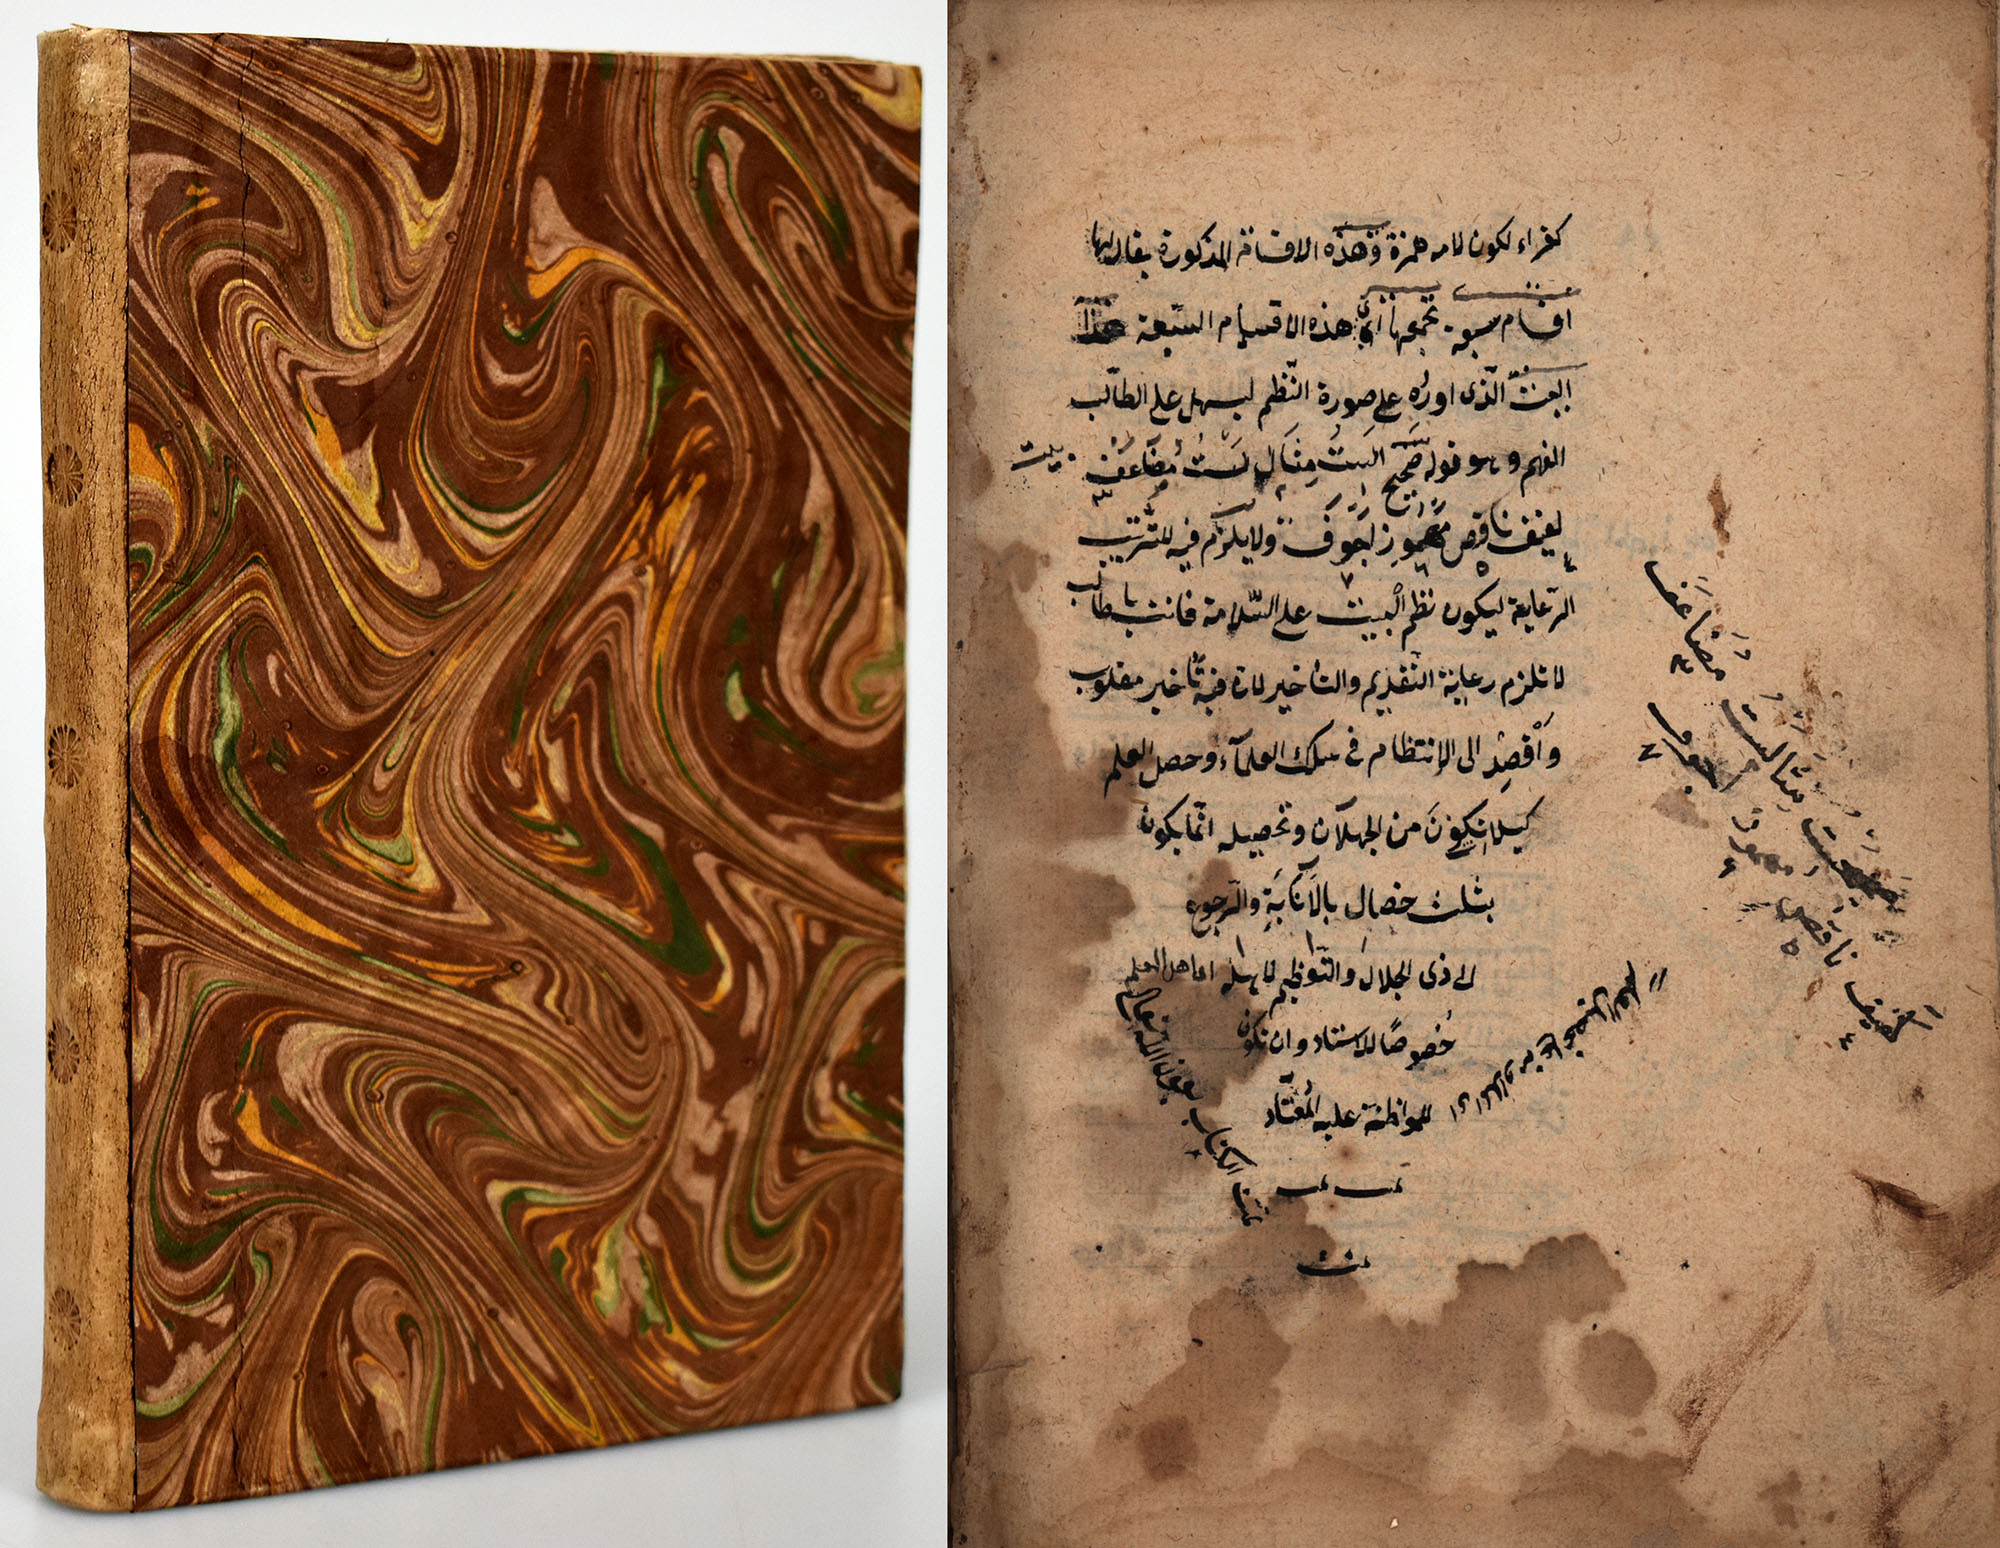 كقراء لكون لامه همزة وهذه الاقسام المذكورة يقال لها
اقسام سبعة تجمعها اي هذه الاقسام السبعة هذا
البيت الذى اورده على صورة النظم ليسهل على الطالب
الفهم وهو قوله صَحِيح الستُ مِثَال لستُ مُضَاعَف
لفيف ناقص مهموز اجوف ولا يلزم فيه للترتيب
الرعاية ليكون نظم البيت على السّلامة فانت يا طالب
لا تلزم رعاية التقديم والتأخير لان فيه تأخير مقلوب
وَاَقْصِد الى الانتظام فى سلك العلمآء وحصل العلم
كيلا تكونَ من الجهلان وتحصيله انّما يكون
بثلث خصال بالانابَةِ والرجوع
الى ذى الجلال والتّواضع لاهله اى اهل العلم
خُصوصًا للاستاد وان تكون
للمواظبة عليه المُعْتَاد
تمت تمت
تمت
تمت الكتاب بعون الله تعالى
مضَاعَف
اجوف
مثال
مهموز
ناقص
لفيف